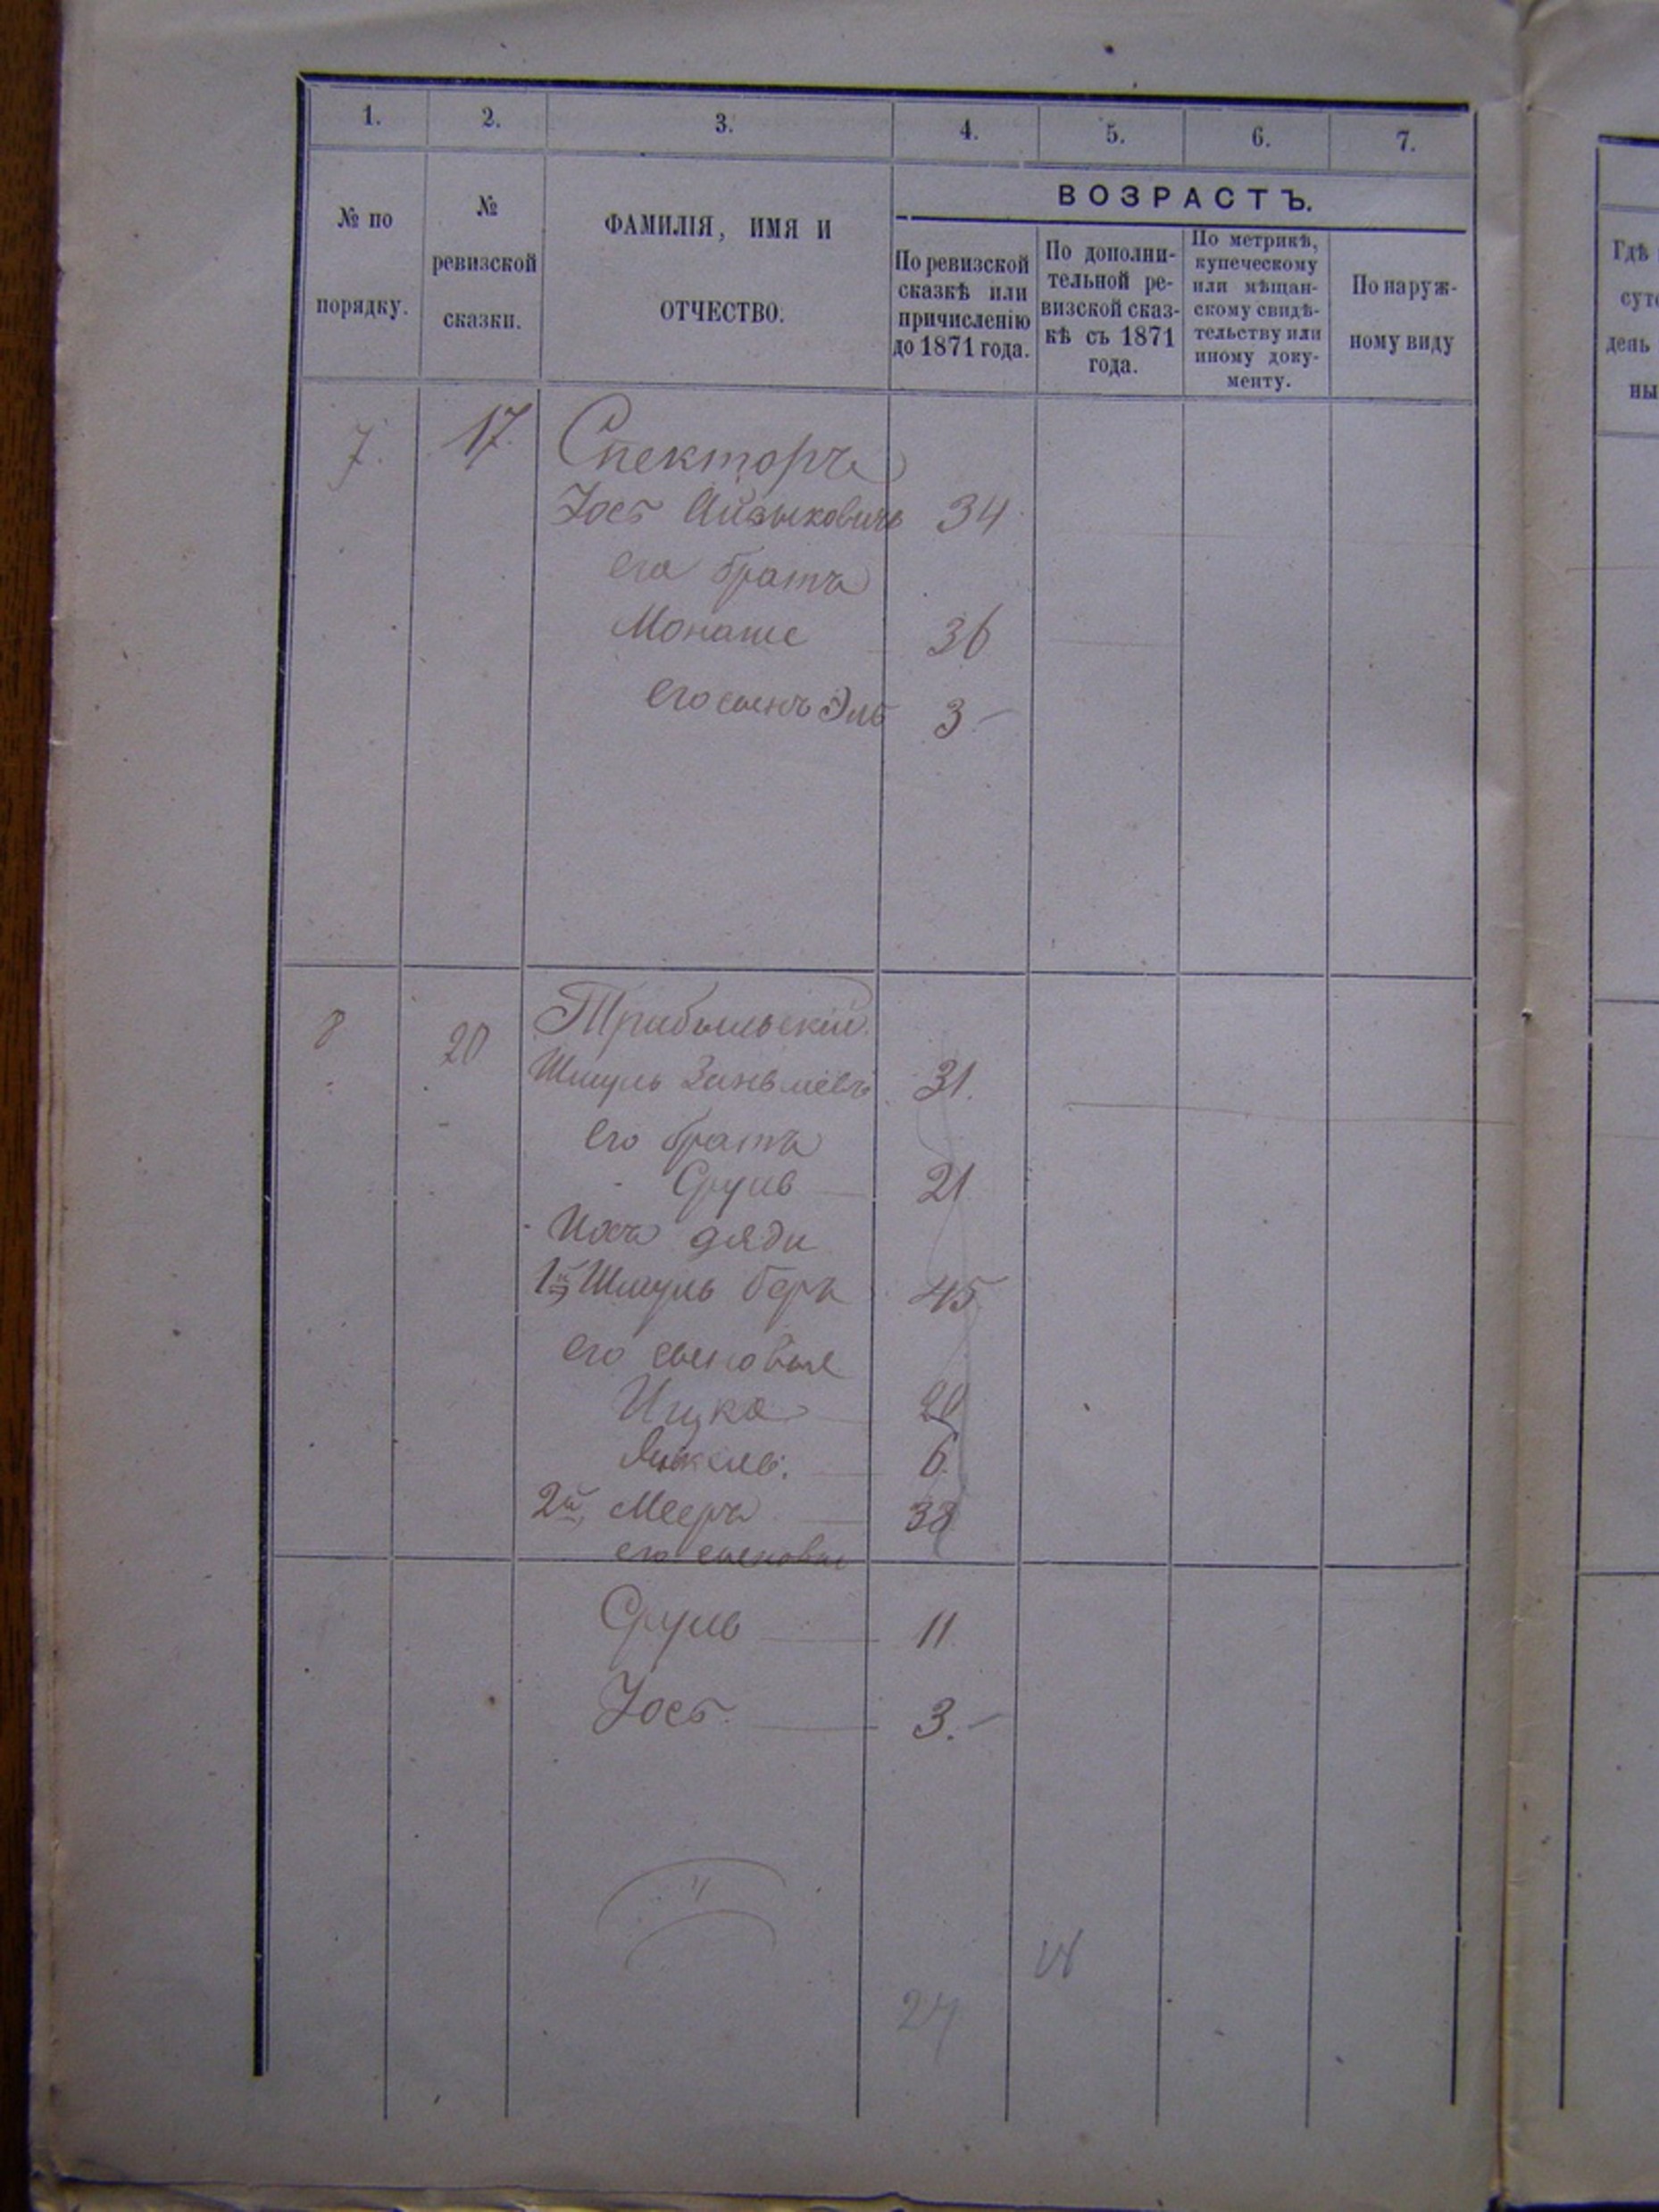 1. 2. 3. 4. 5. 6. 7.
№ по порядку.
№ ревизской сказки.
ФАМИЛІЯ, ИМЯ И ОТЧЕСТВО.
ВОЗРАСТЪ.
По ревизской сказкѣ или причисленію до 1871 года.
По дополнительной ревизской сказкѣ съ 1871 года.
По метрикѣ, купеческому или мѣщанскому свидѣтельству или иному документу.
По наружному виду
7. 17. Спекторъ
Іось Айзыковичъ 34
его братъ
Монаше 36
его сынъ Эль 3
8 20
Шмуль 31.
его братъ
Сруль 21
Ихъ дяди
1й Шмуль Беръ 45
его сыновья
Ицко 20
Янкель. 6
2й Мееръ 38
его сыновья
Сруль 11
Іось 3.
24
Гдѣ
день
ны